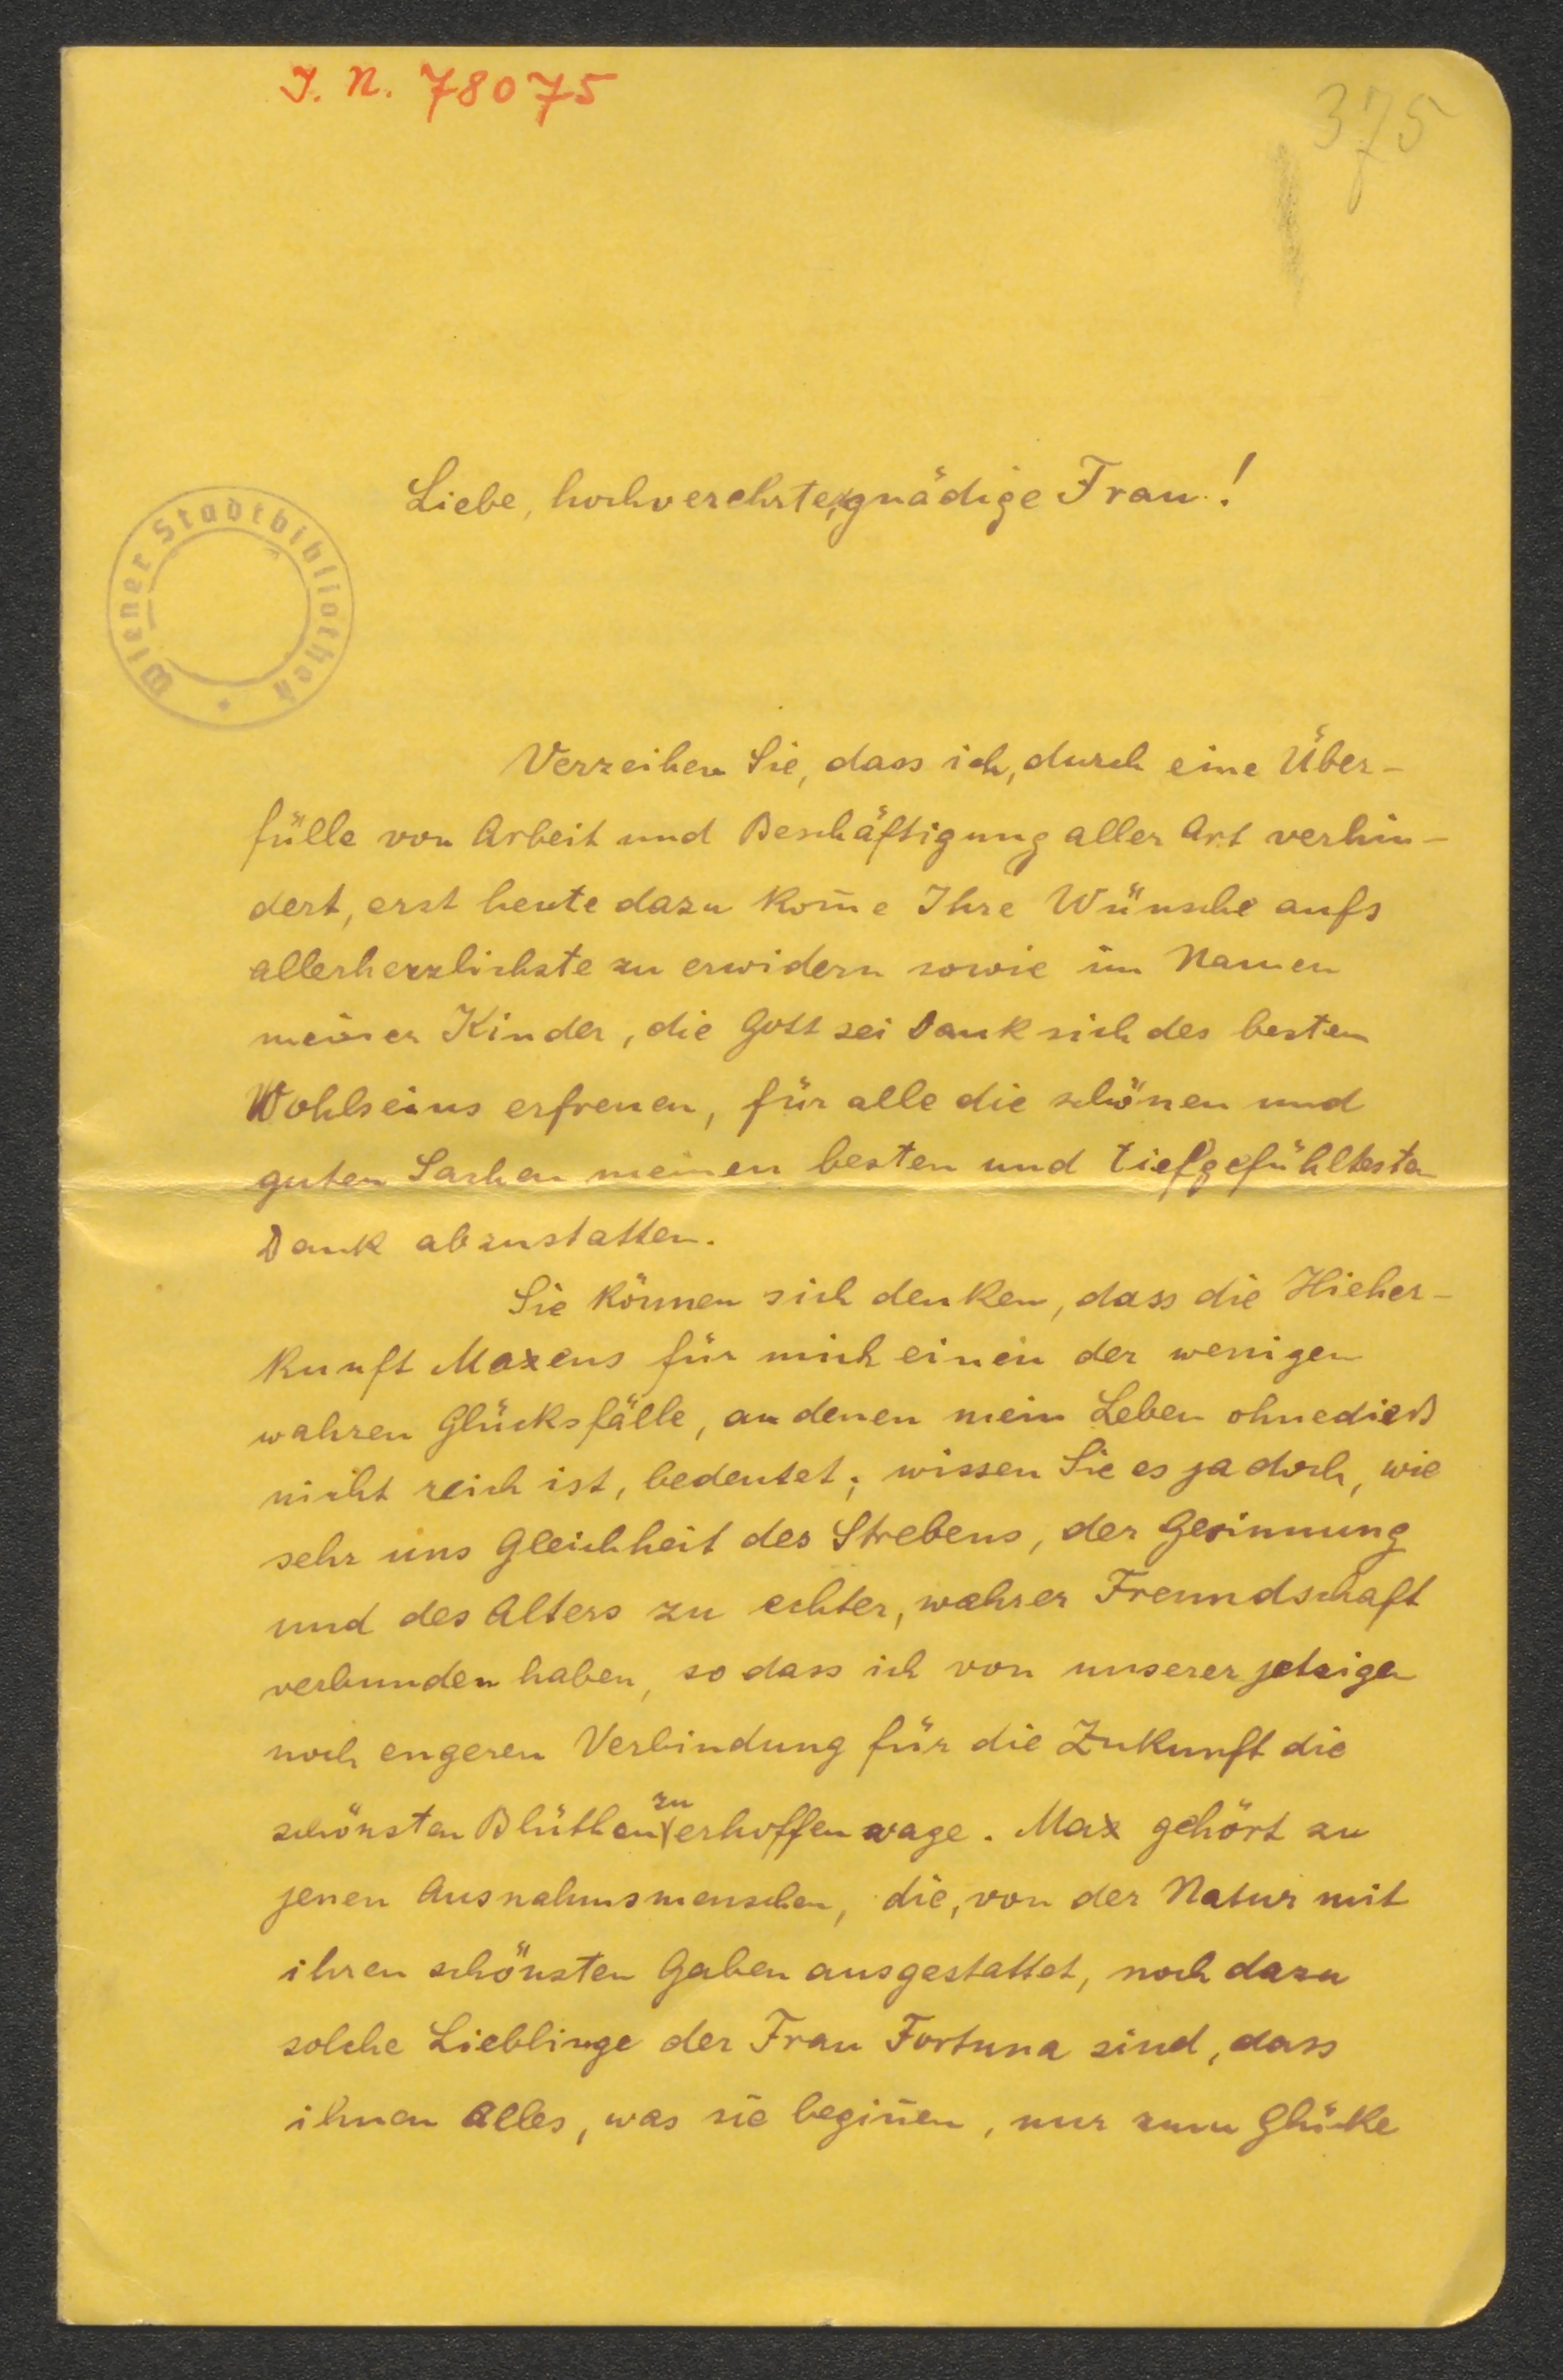 J. N. 78075
375
Wiener Stadtbibliothek
Liebe, hochverehrte, gnädige Frau!
Verzeihen Sie, dass ich, durch eine Über-
fülle von Arbeit und Beschäftigung aller Art verhin-
dert, erst heute dazu kom̄e Ihre Wünsche aufs
allerherzlichste zu erwidern sowie im Namen
meiner Kinder, die Gott sei Dank sich des besten
Wohlseins erfreuen, für alle die schönen und
guten Sachen meinen besten und tiefgefühltesten
Dank abzustatten.
Sie können sich denken, dass die Hieher-
kunft Maxens für mich einen der wenigen
wahren Glücksfälle, an denen mein Leben ohnedieß
nicht reich ist, bedeutet; wissen Sie es ja doch, wie
sehr uns Gleichheit des Strebens, der Gesinnung
und des Alters zu echter, wahrer Freundschaft
verbunden haben, so dass ich von unserer jetzigen
noch engeren Verbindung für die Zukunft die
schönsten Blüthen zu erhoffen wage. Max gehört zu
jenen Ausnahmsmenschen, die, von der Natur mit
ihren schönsten Gaben ausgestattet, noch dazu
solche Lieblinge der Frau Fortuna sind, dass
ihnen alles, was sie begin̄en, nur zum Glücke